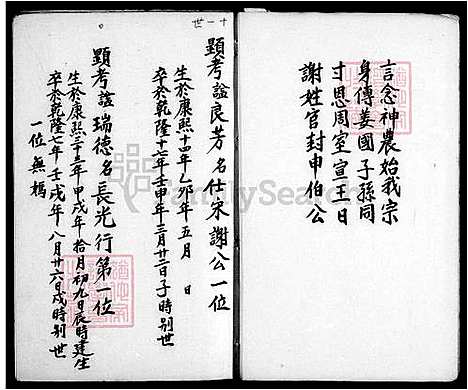 言念神農始我宗
身傳姜國子孫同
寸恩周室宣王日
謝姓官封申伯公
十一世
顕考諡良芳名仕宋謝公一位
生於康熙十四年乙卯年五月 日
卒於乾隆十七年壬申年三月廿二日子時別世
顕考諡瑞德名長光行第一位
生於康熙三十三年甲戌年拾月初九日辰時建生
卒於乾隆七年壬戌年八月廿六日戌時别世
一位無媽
FamilySearch